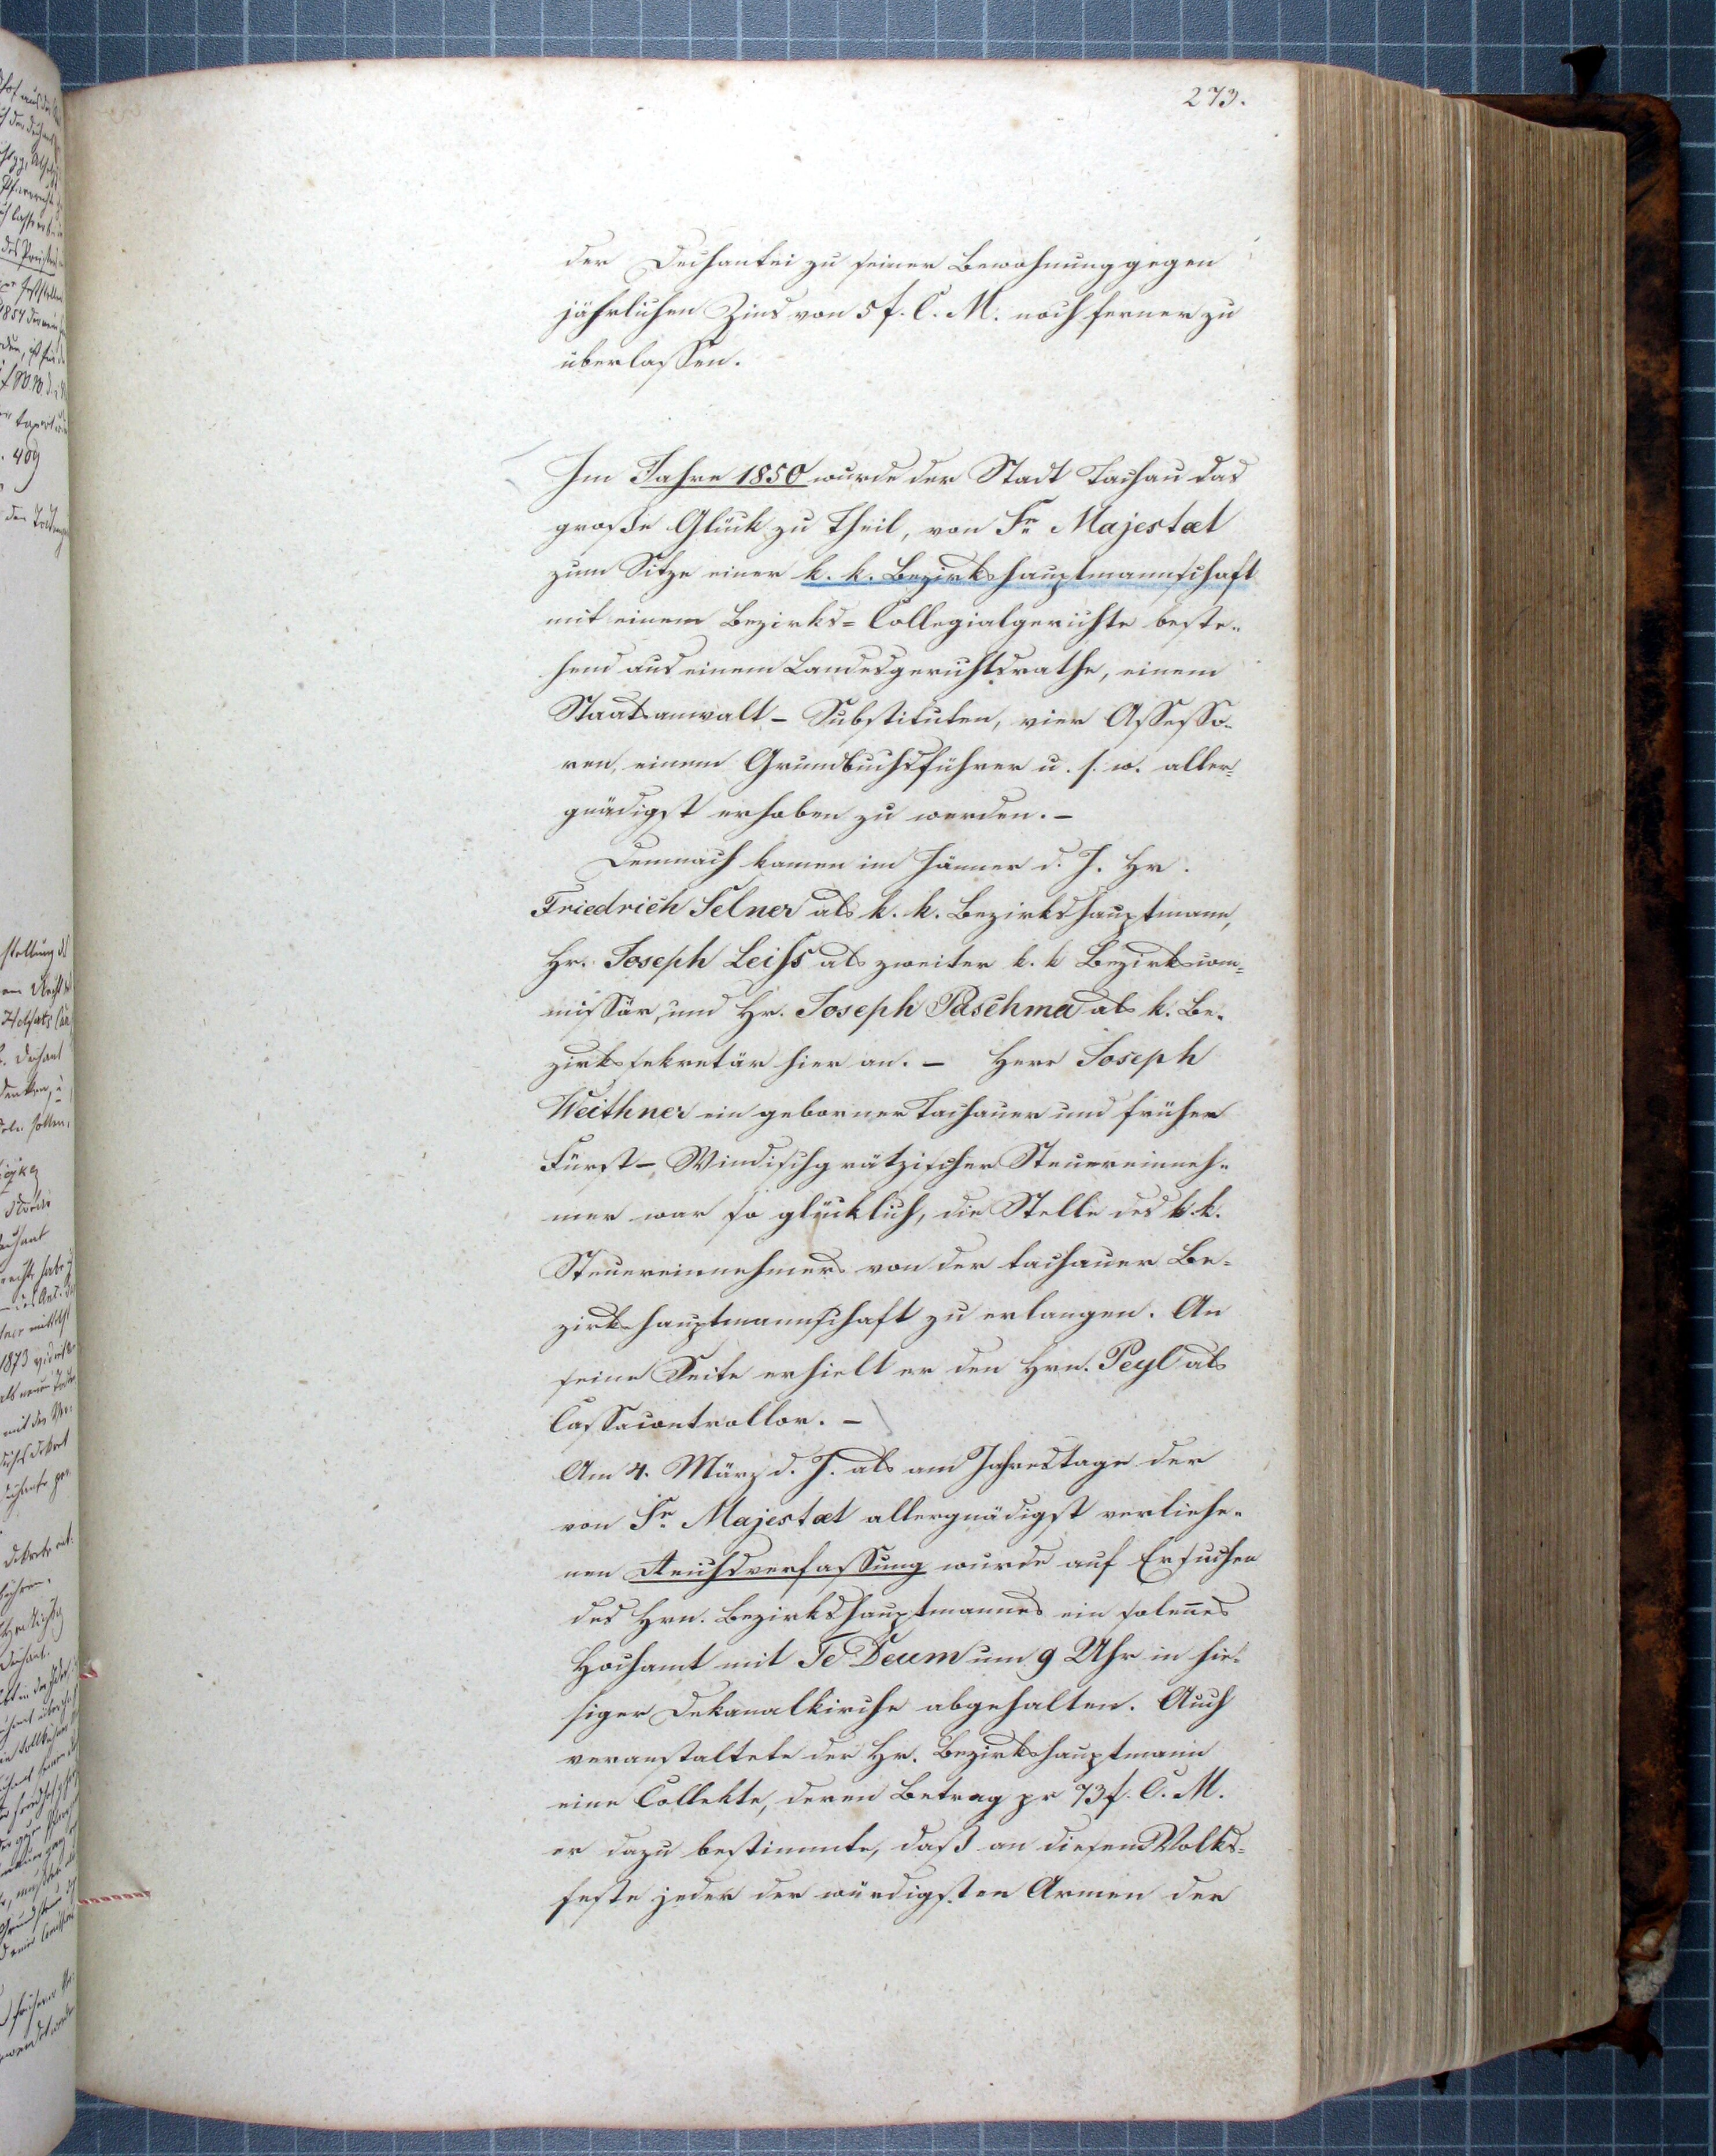 273.
der Dechantei zu seiner Bewohnung gegen
jährlichen Zins von 5 f. C. M. noch ferner zu
überlassen.
Im Jahre 1850 wurde der Stadt Tachau das
große Glück zu Theil, von Sr. Majestæt
zum Sitze einer k. k. Bezirkshauptmannschaft
mit einem Bezirks-Collegialgerichte beste-
hend aus einem Landesgerichtsrathe, einem
Staatsanwalt-Substituten, vier Assesso-
ren, einem Grundbuchsführer u. s. w. aller-
gnädigst erhoben zu werden. –
Demnach kamen im Jänner d. J. Hr.
Friedrich Selner als k. k. Bezirkshauptmann,
Hr. Joseph Leiss als zweiter k. k Bezirkscom-
missär, und Hr. Joseph Paschma als k. Be-
zirkssekretär hier an. – Herr Joseph
Weithner ein geborner Tachauer und früher
Fürst-Windischgrätzischer Steuereinneh-
mer war so glücklich, die Stelle des k. k.
Steuereinnehmers von der tachauer Be-
zirkshauptmannschaft zu erlangen. An
seine Seite erhielt er den Hrn. Peyl als
Cassacontrollor. –
Am 4. März d. J. als am Jahrestage der
von Sr. Majestæt allergnädigst verliehe-
nen Reichsverfassung wurde auf Ersuchen
des Hrn. Bezirkshauptmannes ein solen̄es
Hochamt mit Te Deum um 9 Uhr in hie-
siger Dekanalkirche abgehalten. Auch
veranstaltete der Hr. Bezirkshauptmann
eine Collekte, deren Betrag pr 73 f. C. M.
er dazu bestimmte, daß an diesem Volks-
feste jeder der würdigsten Armen der